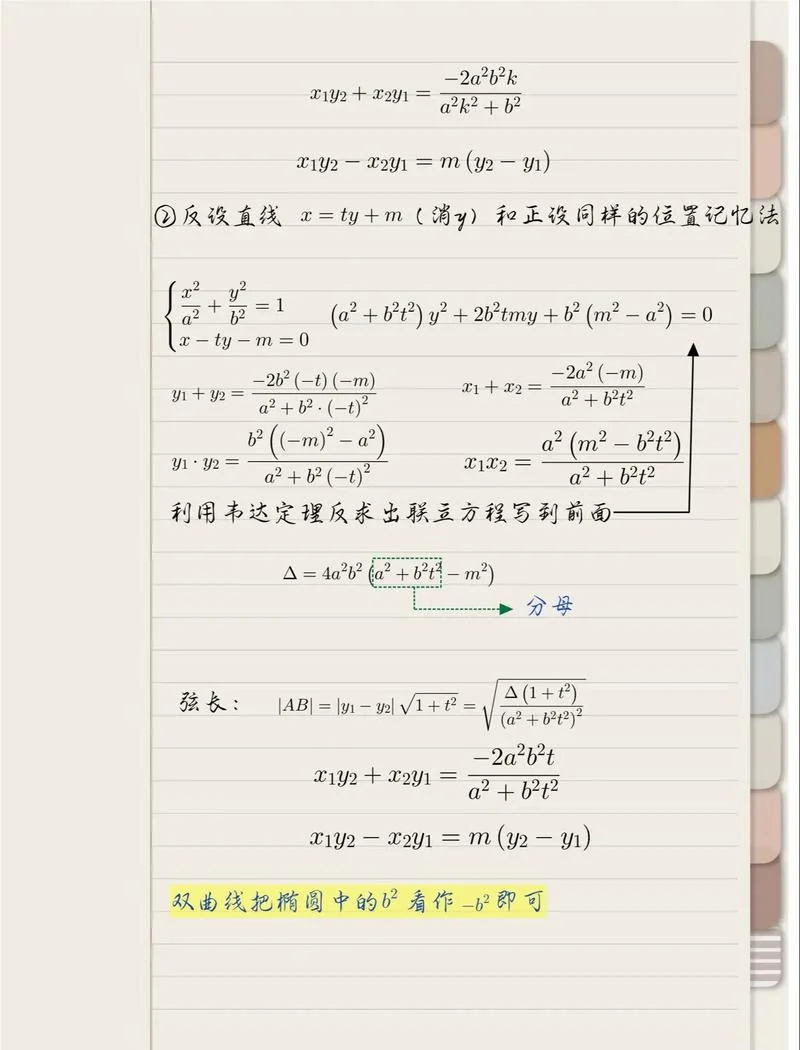 x₁y₂ + x₂y₁ = \frac{-2a²b²k}{a²k² + b²}
x₁y₂ − x₂y₁ = m (y₂ − y₁)
②反设直线 x = ty + m（消y）和正设同样的位置记忆法
\begin{cases} \frac{x²}{a²} + \frac{y²}{b²} = 1 \\ x − ty − m = 0 \end{cases} (a² + b²t²) y² + 2b²tmy + b² (m² − a²) = 0
y₁ + y₂ = \frac{-2b² (−t) (−m)}{a² + b² · (−t)²} x₁ + x₂ = \frac{-2a² (−m)}{a² + b²t²}
y₁ · y₂ = \frac{b² ((−m)² − a²)}{a² + b² (−t)²} x₁x₂ = \frac{a² (m² − b²t²)}{a² + b²t²}
利用韦达定理反求出联立方程写到前面
Δ = 4a²b² (a² + b²t² − m²)
分母
弦长： |AB| = |y₁ − y₂| \sqrt{1 + t²} = \sqrt{\frac{Δ (1 + t²)}{(a² + b²t²)²}}
x₁y₂ + x₂y₁ = \frac{-2a²b²t}{a² + b²t²}
x₁y₂ − x₂y₁ = m (y₂ − y₁)
双曲线把椭圆中的b² 看作 −b² 即可